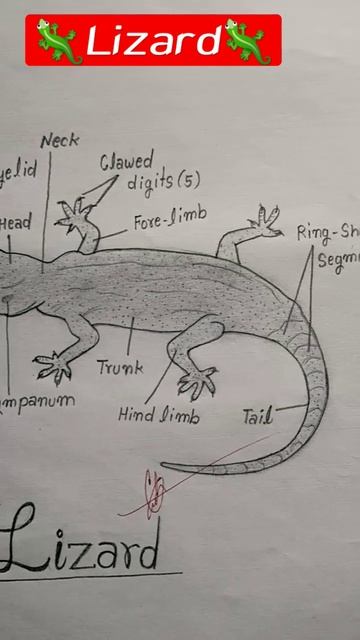 🦎Lizard🦎
Neck
yelid
Clawed
digits(5)
Head
Fore-limb
Ring-Sh
Segm
Trunk
mpanum
Hind limb
Tail
Lizard